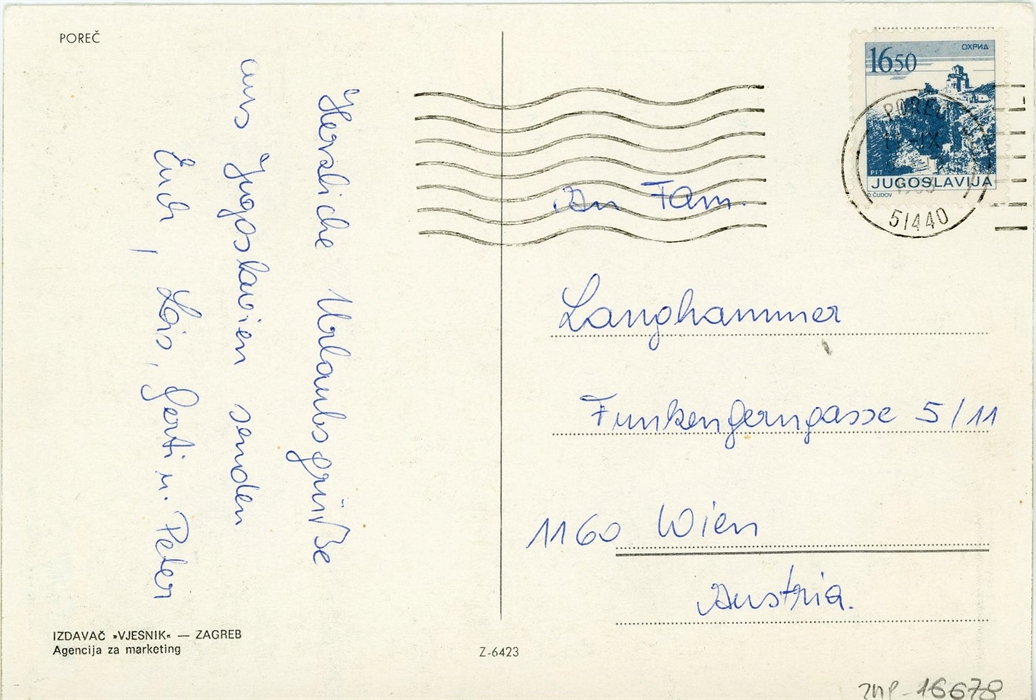 POREČ
Herzliche Urlaubsgrüße
aus Jugoslawien senden
Euch, Lois, Gerti u. Peter
IZDAVAČ »VJESNIK« — ZAGREB
Agencija za marketing
Z-6423
1650
ОХРИД
PTT
JUGOSLAVIJA
D. ČUDOV
POREČ
51440
An Fam.
Langhammer
Funkengerngasse 5/11
1160 Wien
Austria.
16678